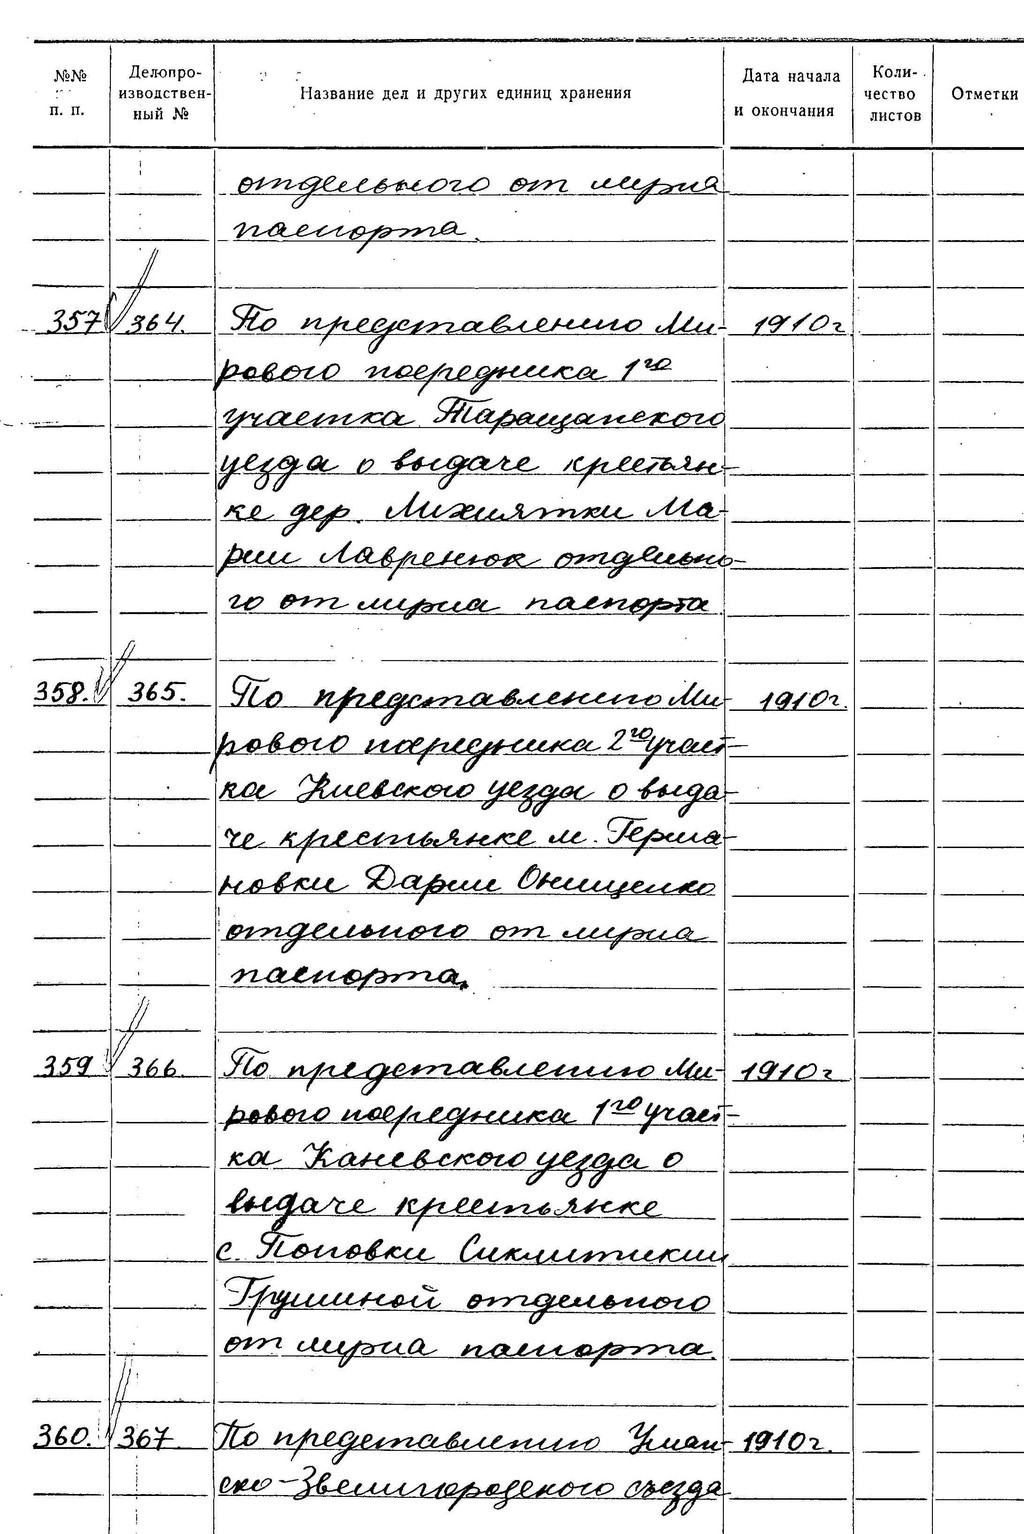 №№ п. п.
Делопро-
изводствен-
ный №
Название дел и других единиц хранения
Дата начала
и окончания
Коли-
чество
листов
Отметки
отдельного от мужа
паспорта.
357 364. По представлению Ми- 1910г
рового посредника 1го
участка Таращанского
уезда о выдаче крестьян-
ке дер. Михиятки Ма-
рии Лавренюк отдельно-
го от мужа паспорта
358. 365. По представлению Ми- 1910г.
рового посредника 2го участ-
ка Киевского уезда о выда-
че крестьянке м. Герма-
новки Дарии Онищенко
отдельного от мужа
паспорта.
359 366. По представлению Ми- 1910г
рового посредника 1го участ-
ка Каневского уезда о
выдаче крестьянке
с. Поповки Сиклитикии
Грушиной отдельного
от мужа паспорта.
360. 367 По представлению Уман- 1910г.
ско-Звенигородского съезда